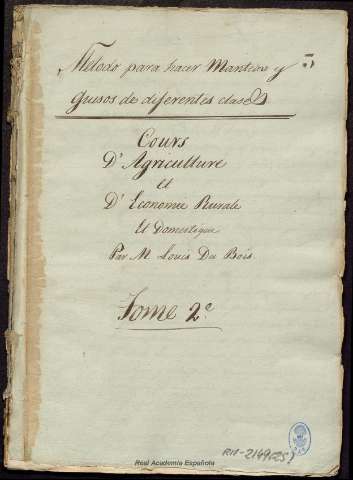 Metodo para hacer Manteca y
Quesos de diferentes clases
Cours
D'Agriculture
et
D'Economie Rurale
Et Domestique
Par M. Louis Du Bois
Tome 2e
RM-2149 (25)
Real Academia Española